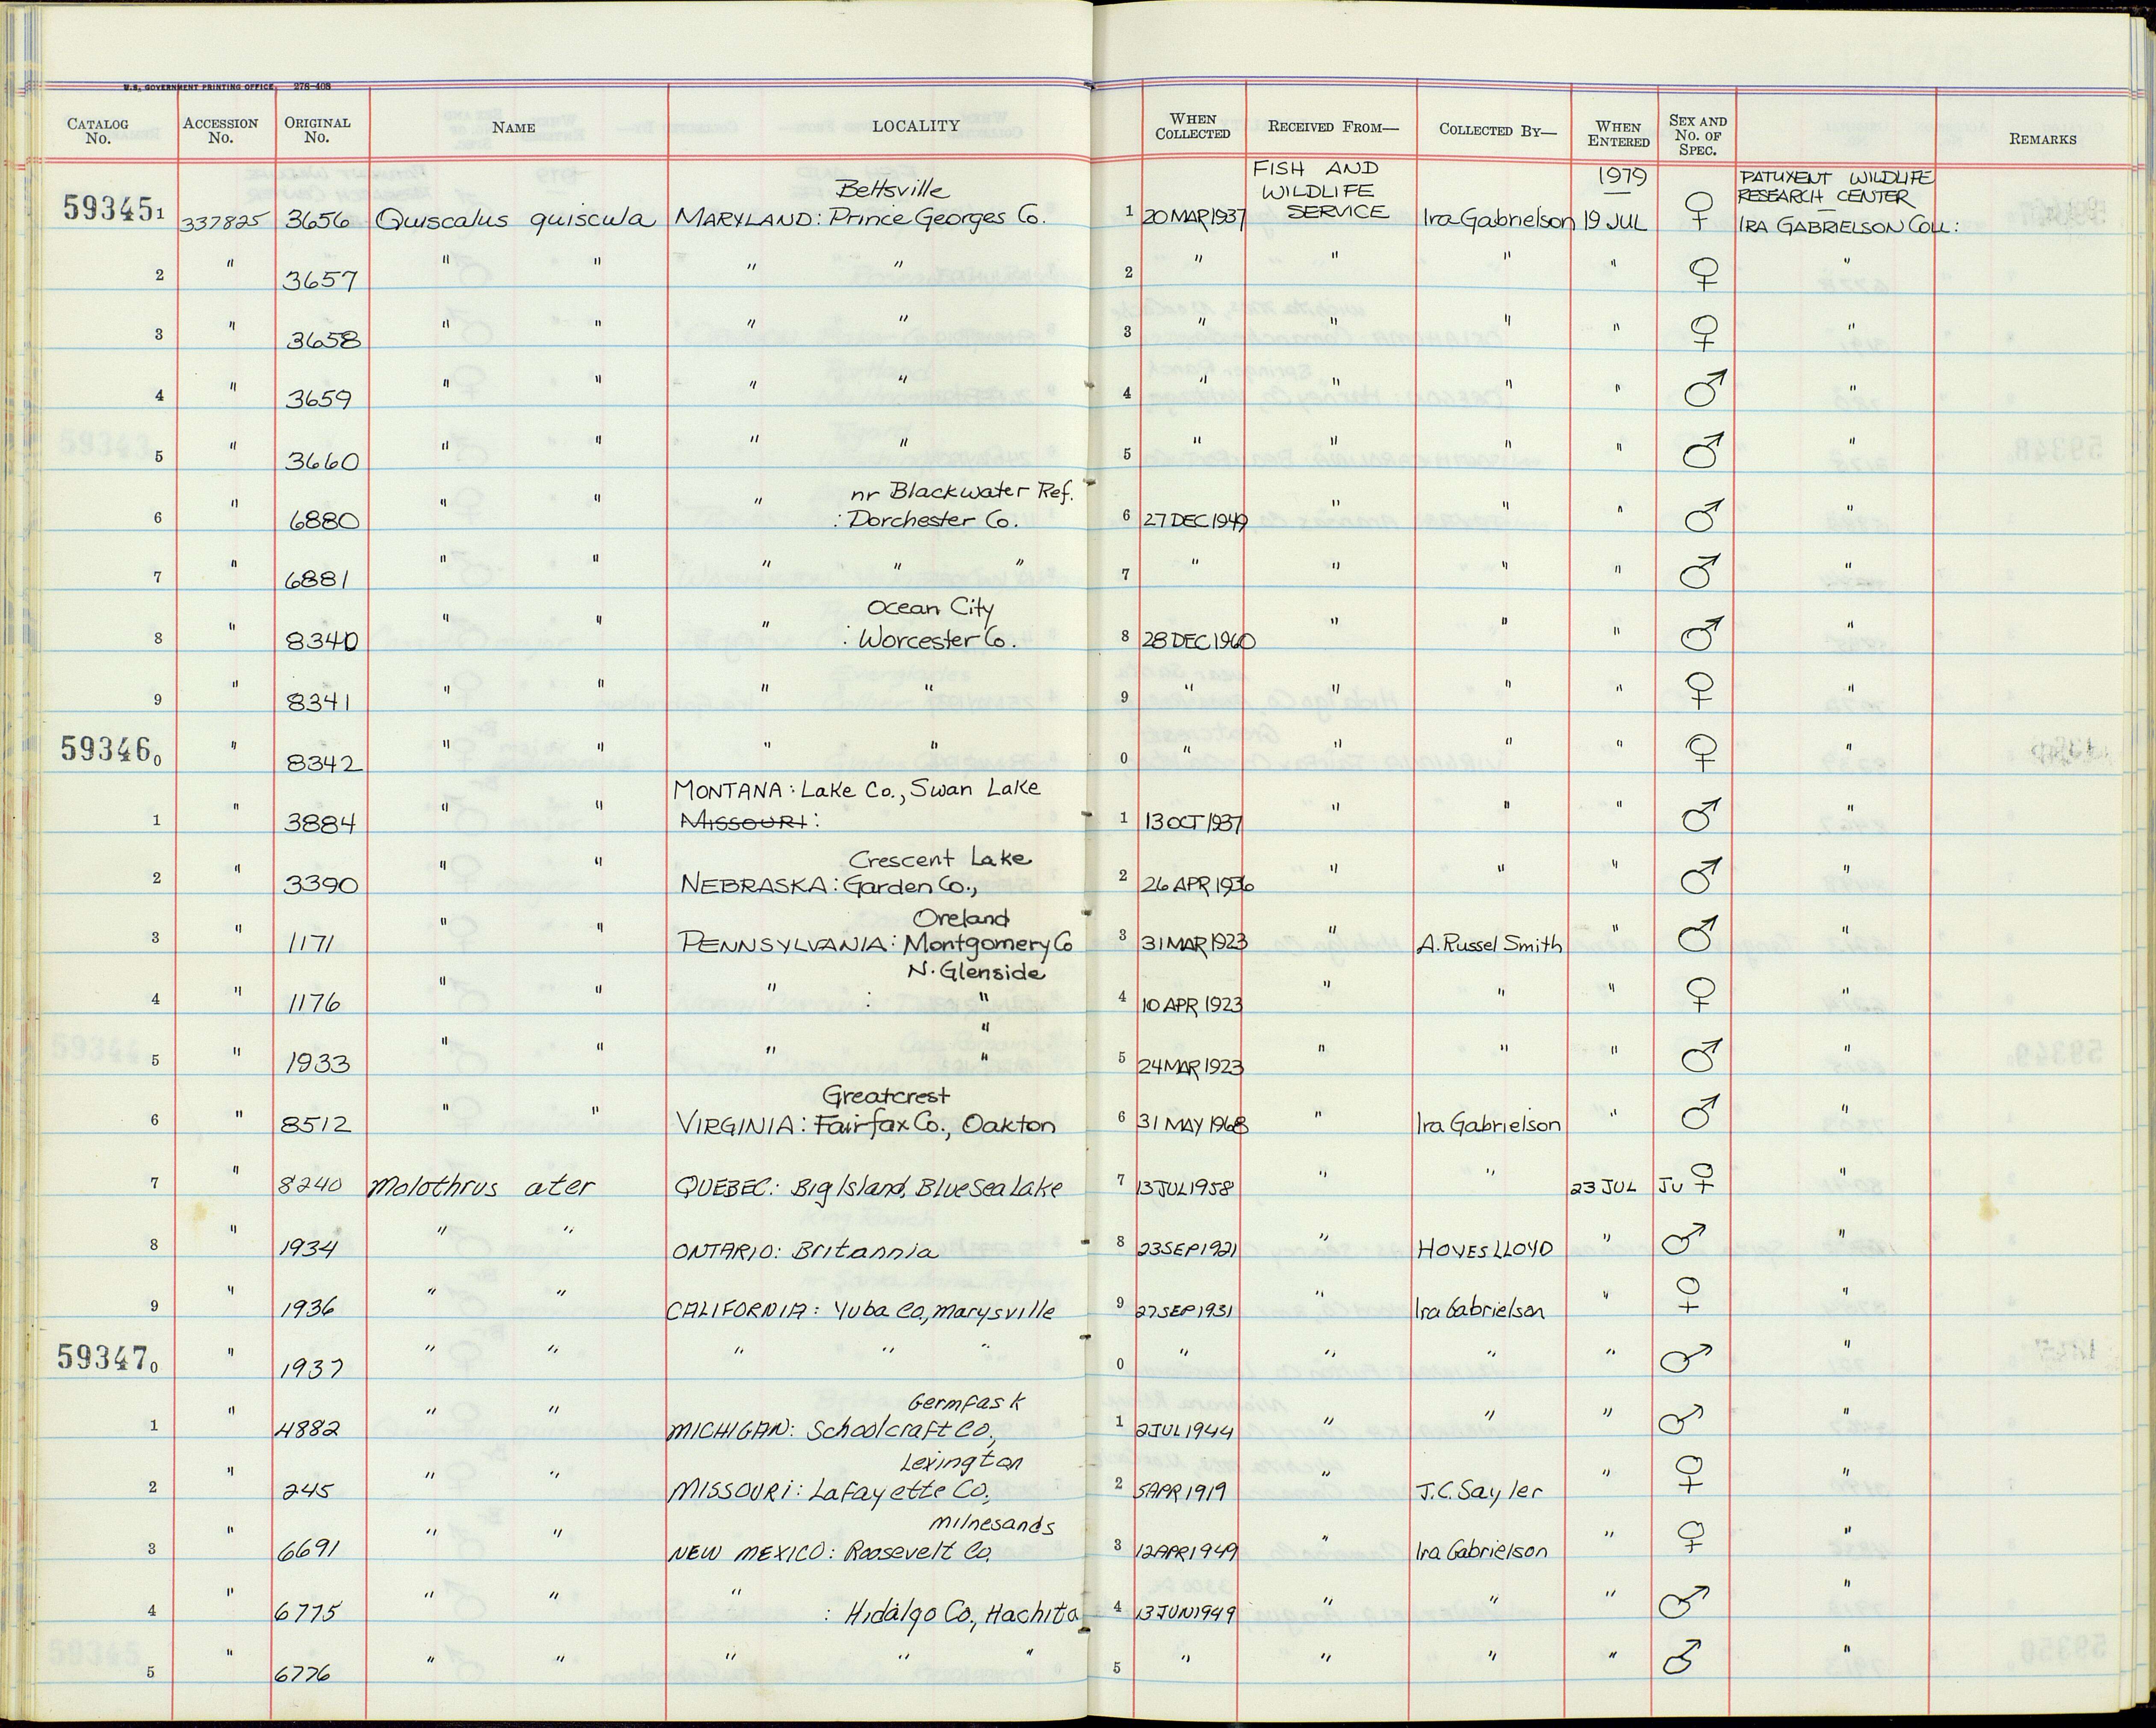 U.S. GOVERNMENT PRINTING OFFICE 278-408
CATALOG No. ACCESSION No. ORIGINAL No. NAME LOCALITY WHEN COLLECTED RECEIVED FROM— COLLECTED BY— WHEN ENTERED SEX AND No. OF SPEC. REMARKS
Beltsville FISH AND WILDLIFE SERVICE 1979 PATUXENT WILDLIFE RESEARCH CENTER
593451 337825 3656 Quiscalus quiscula MARYLAND: Prince Georges Co. 1 20 MAR 1937 Ira Gabrielson 19 JUL ♀ IRA GABRIELSON COLL:
2 " 3657 " " " " 2 " " " " ♀ "
3 " 3658 " " " " 3 " " " " ♀ "
4 " 3659 " " " " 4 " " " " ♂ "
5 " 3660 " " " " 5 " " " " ♂ "
nr Blackwater Ref.
6 " 6880 " " " : Dorchester Co. 6 27 DEC 1949 " " " ♂ "
7 " 6881 " " " " " 7 " " " " ♂ "
Ocean City
8 " 8340 " " " : Worcester Co. 8 28 DEC 1960 " " " ♂ "
9 " 8341 " " " " 9 " " " " ♀ "
593460 " 8342 " " " " 0 " " " " ♀ "
MONTANA: Lake Co., Swan Lake
1 " 3884 " " MISSOURI: 1 13 OCT 1937 " " " ♂ "
Crescent Lake
2 " 3390 " " NEBRASKA: Garden Co., 2 26 APR 1936 " " " ♂ "
Oreland
3 " 1171 " " PENNSYLVANIA: Montgomery Co 3 31 MAR 1923 " A. Russel Smith " ♂ "
N. Glenside
4 " 1176 " " " : " 4 10 APR 1923 " " " ♀ "
"
5 " 1933 " " " " 5 24 MAR 1923 " " " ♂ "
Greatcrest
6 " 8512 " " VIRGINIA: Fairfax Co., Oakton 6 31 MAY 1968 " Ira Gabrielson " ♂ "
7 " 8240 Molothrus ater QUEBEC: Big Island, Blue Sea Lake 7 13 JUL 1958 " " 23 JUL Ju ♀ "
8 " 1934 " " ONTARIO: Britannia 8 23 SEP 1921 " HOYES LLOYD " ♂ "
9 " 1936 " " CALIFORNIA: Yuba Co., Marysville 9 27 SEP 1931 " Ira Gabrielson " ♀ "
593470 " 1937 " " " " " 0 " " " " ♂ "
Germfask
1 " 4882 " " MICHIGAN: Schoolcraft Co., 1 2 JUL 1944 " " " ♂ "
Lexington
2 " 245 " " MISSOURI: Lafayette Co., 2 5 APR 1919 " J.C. Sayler " ♀ "
milnesands
3 " 6691 " " NEW MEXICO: Roosevelt Co. 3 12 APR 1949 " Ira Gabrielson " ♀ "
4 " 6775 " " " : Hidalgo Co., Hachita 4 13 JUN 1949 " " " ♂ "
5 " 6776 " " " " " 5 " " " " ♂ "